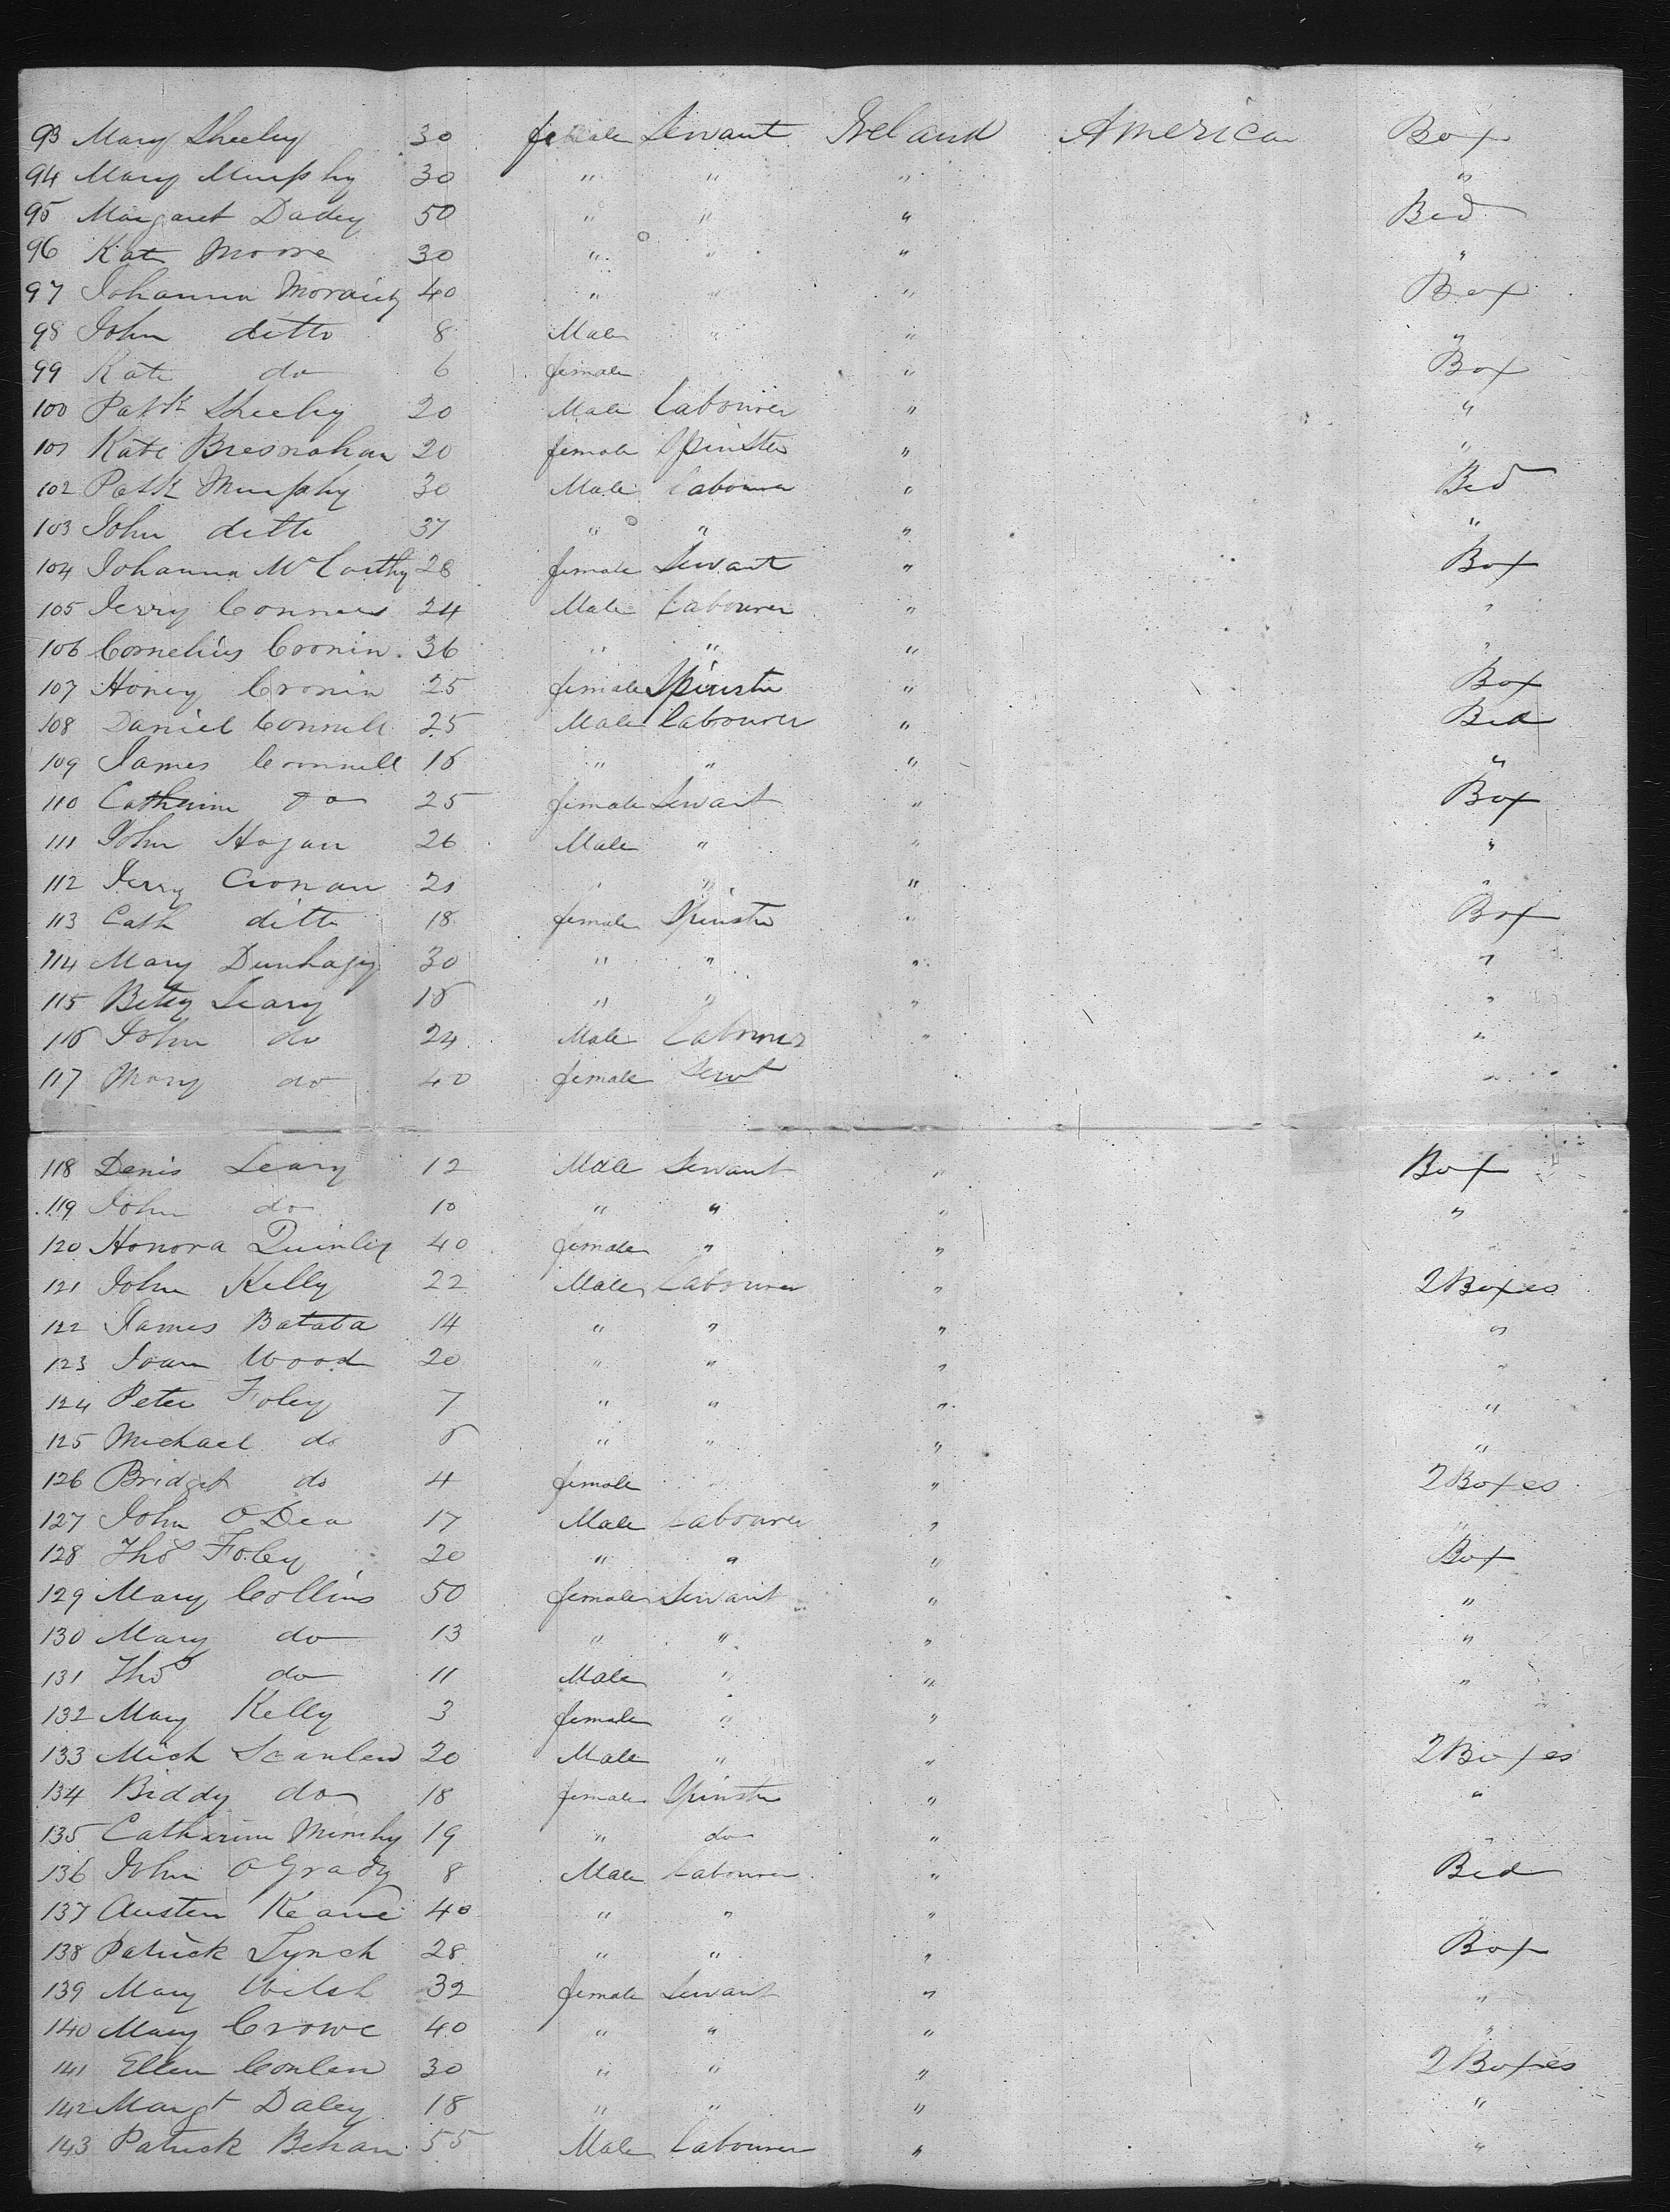 93 Mary Sheehy 30 female Servant Ireland America Box
94 Mary Murphy 30 " " " "
95 Margaret Dadey 50 " " " Bed
96 Kate Moore 30 " " " "
97 Johanna Moraity 40 " " " Box
98 John ditto 8 Male " " "
99 Kate do 6 female " Box
100 Patk Sheehy 20 Male Labourer " "
101 Kate Bresnahan 20 female Spinster " "
102 Patk Murphy 30 Male Labourer " Bed
103 John ditto 37 " " " "
104 Johanna McCarthy 28 female Servant " Box
105 Jerry Connors 24 Male Labourer " "
106 Cornelius Cronin 36 " " " "
107 Honey Cronin 25 female Spinster " Box
108 Daniel Connell 25 Male Labourer " Bed
109 James Connell 16 " " " "
110 Catherine do 25 female Servant " Box
111 John Hogan 26 Male " " "
112 Jerry Cronan 21 " " " "
113 Cath ditto 18 female Spinster " Box
114 Mary 30 " " " "
115 Betsy Leary 16 " " " "
116 John do 24 Male Labourer " "
117 Mary do 40 female Servt "
118 Denis Leary 12 Male Servant " Box
119 John do 10 " " " "
120 Honora Quinlig 40 female " " "
121 John Kelly 22 Male Labourer " 2 Boxes
122 James Batata 14 " " " "
123 Joan Wood 20 " " " "
124 Peter Foley 7 " " " "
125 Michael do 6 " " " "
126 Bridget do 4 female " " 2 Boxes
127 John O Dea 17 Male Labourer " "
128 Thos Foley 20 " " " Box
129 Mary Collins 50 female Servant " "
130 Mary do 13 " " " "
131 Thos do 11 Male " " "
132 Mary Kelly 3 female " " "
133 Mich Scanlen 20 Male " " 2 Boxes
134 Biddy do 18 female Spinster " "
135 Catherine Minihy 19 " do " "
136 John O Grady 8 Male Labourer " Bed
137 Austen Keane 40 " " " "
138 Patrick Lynch 28 " " " Box
139 Mary Welsh 32 female Servant " "
140 Mary Crowe 40 " " " "
141 Ellen Conlen 30 " " " 2 Boxes
142 Margt Daley 18 " " " "
143 Patrick Behan 55 Male Labourer " "